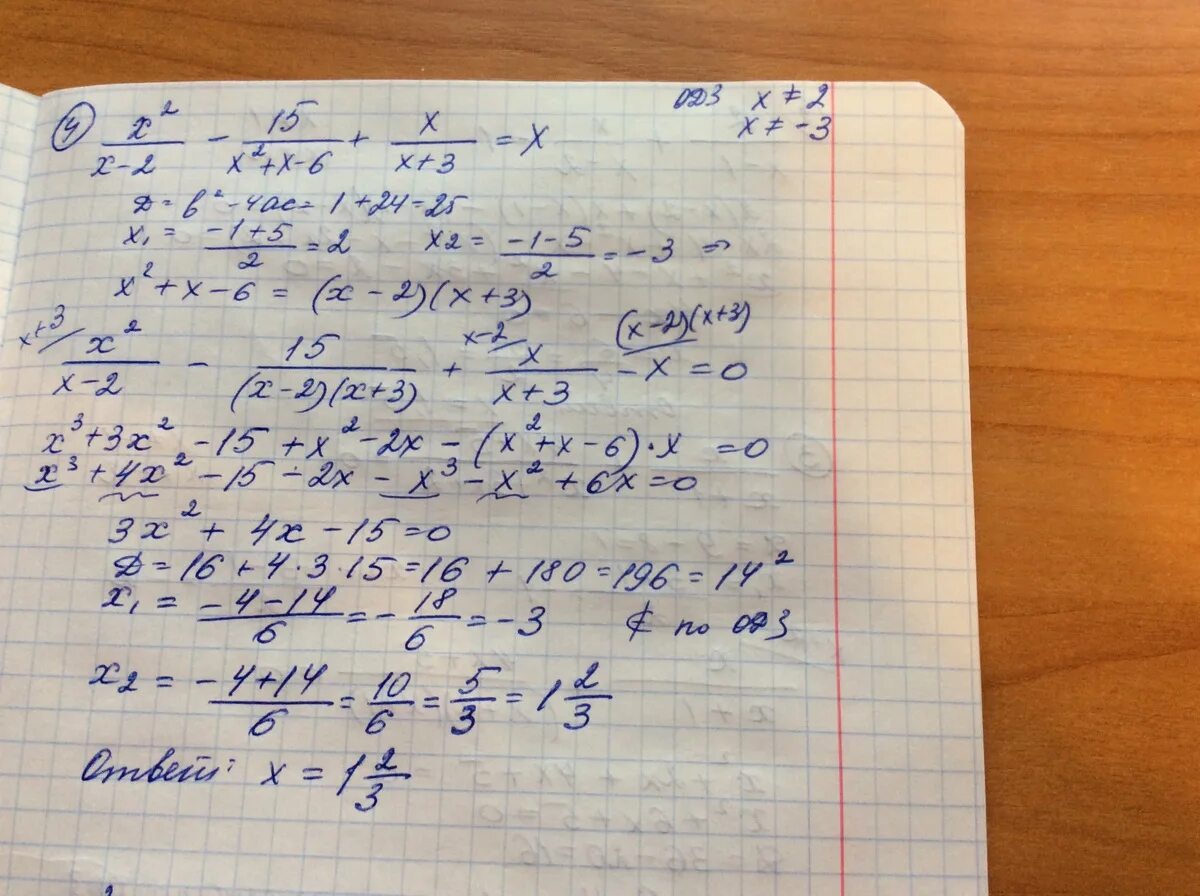 ОДЗ x ≠ 2
x ≠ -3
④ x²/(x-2) - 15/(x²+x-6) + x/(x+3) = x
D = b² - 4ac = 1 + 24 = 25
x₁ = (-1+5)/2 = 2 x₂ = (-1-5)/2 = -3 ⇒
x² + x - 6 = (x-2)(x+3)
x+3/ x²/(x-2) - 15/((x-2)(x+3)) + x-2/ x/(x+3) - (x-2)(x+3)/ x = 0
x³ + 3x² - 15 + x² - 2x - (x² + x - 6) · x = 0
x³ + 4x² - 15 - 2x - x³ - x² + 6x = 0
3x² + 4x - 15 = 0
D = 16 + 4 · 3 · 15 = 16 + 180 = 196 = 14²
x₁ = (-4-14)/6 = -18/6 = -3 ∉ по ОДЗ
x₂ = (-4+14)/6 = 10/6 = 5/3 = 1 2/3
Ответ: x = 1 2/3